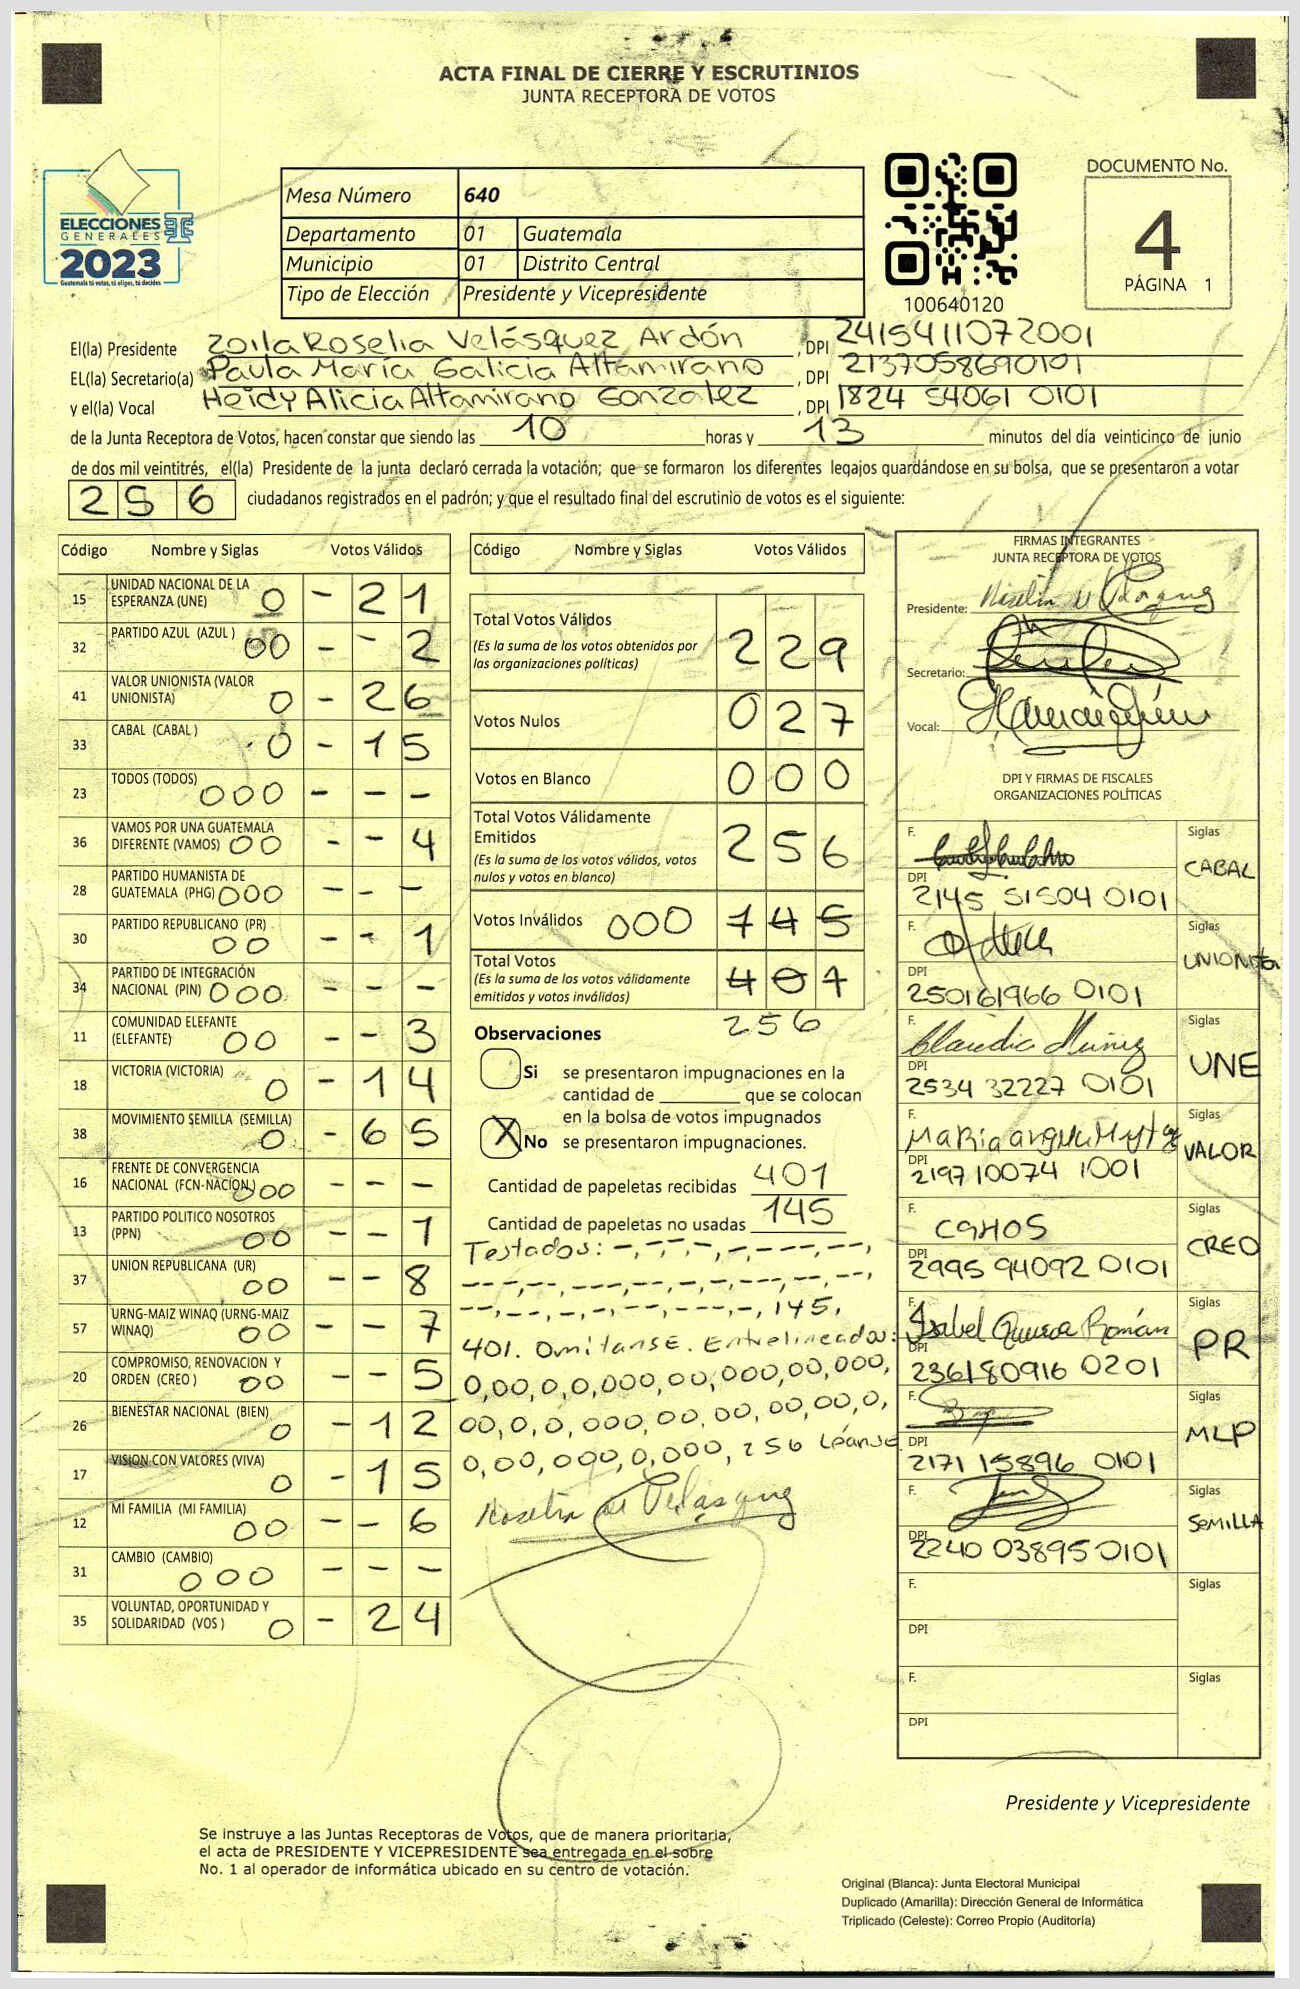 ACTA FINAL DE CIERRE Y ESCRUTINIOS
JUNTA RECEPTORA DE VOTOS
ELECCIONES
GENERALES
2023
Guatemala tú votas, tú eliges, tú decides
Mesa Número 640
Departamento 01 Guatemala
Municipio 01 Distrito Central
Tipo de Elección Presidente y Vicepresidente
100640120
DOCUMENTO No.
4
PÁGINA 1
El(la) Presidente Zoila Roselia Velásquez Ardón, DPI 2415411072001
EL(la) Secretario(a) Paula María Galicia Altamirano, DPI 2137058690101
y el(la) Vocal Heidy Alicia Altamirano Gonzalez, DPI 1824 54061 0101
de la Junta Receptora de Votos, hacen constar que siendo las 10 horas y 13 minutos del día veinticinco de junio
de dos mil veintitrés, el(la) Presidente de la junta declaró cerrada la votación; que se formaron los diferentes legajos guardándose en su bolsa, que se presentaron a votar
256 ciudadanos registrados en el padrón; y que el resultado final del escrutinio de votos es el siguiente:
Código Nombre y Siglas Votos Válidos
15 UNIDAD NACIONAL DE LA ESPERANZA (UNE) 0 - 2 1
32 PARTIDO AZUL (AZUL ) 00 - - 2
41 VALOR UNIONISTA (VALOR UNIONISTA) 0 - 2 6
33 CABAL (CABAL ) 0 - 1 5
23 TODOS (TODOS) 000 - - -
36 VAMOS POR UNA GUATEMALA DIFERENTE (VAMOS) 00 - - 4
28 PARTIDO HUMANISTA DE GUATEMALA (PHG) 000 - - -
30 PARTIDO REPUBLICANO (PR) 00 - - 1
34 PARTIDO DE INTEGRACIÓN NACIONAL (PIN) 000 - - -
11 COMUNIDAD ELEFANTE (ELEFANTE) 00 - - 3
18 VICTORIA (VICTORIA) 0 - 1 4
38 MOVIMIENTO SEMILLA (SEMILLA) 0 - 6 5
16 FRENTE DE CONVERGENCIA NACIONAL (FCN-NACION) 000 - - -
13 PARTIDO POLITICO NOSOTROS (PPN) 00 - - 1
37 UNION REPUBLICANA (UR) 00 - - 8
57 URNG-MAIZ WINAQ (URNG-MAIZ WINAQ) 00 - - 7
20 COMPROMISO, RENOVACION Y ORDEN (CREO ) 00 - - 5
26 BIENESTAR NACIONAL (BIEN) 0 - 1 2
17 VISION CON VALORES (VIVA) 0 - 1 5
12 MI FAMILIA (MI FAMILIA) 00 - - 6
31 CAMBIO (CAMBIO) 000 - - -
35 VOLUNTAD, OPORTUNIDAD Y SOLIDARIDAD (VOS ) 0 - 2 4
Código Nombre y Siglas Votos Válidos
Total Votos Válidos 2 2 9
(Es la suma de los votos obtenidos por
las organizaciones políticas)
Votos Nulos 0 2 7
Votos en Blanco 0 0 0
Total Votos Válidamente
Emitidos 2 5 6
(Es la suma de los votos válidos, votos
nulos y votos en blanco)
Votos Inválidos 000 1 4 5
Total Votos 4 0 1
(Es la suma de los votos válidamente
emitidos y votos inválidos)
256
Observaciones
Si se presentaron impugnaciones en la
cantidad de ________ que se colocan
en la bolsa de votos impugnados
X No se presentaron impugnaciones.
Cantidad de papeletas recibidas 401
Cantidad de papeletas no usadas 145
Testados: -, --, -, -, ---, --,
--, --, --, -, --, ---, --, --,
--, --, -, -, --, ---, -, 145,
401. Omítanse. Entrelineados:
0,00,0,0,000,00,000,00,000,
00,0,0,000,00,00,00,00,0,
0,00,000,0,000,256 Léanse.
FIRMAS INTEGRANTES
JUNTA RECEPTORA DE VOTOS
Presidente:
Secretario:
Vocal:
DPI Y FIRMAS DE FISCALES
ORGANIZACIONES POLÍTICAS
F. Siglas CABAL
DPI 2145 51504 0101
F. Siglas UNIONISTA
DPI 250161966 0101
F. Claudia Muñiz Siglas UNE
DPI 2534 32227 0101
F. Siglas VALOR
DPI 2197 10074 1001
F. Siglas CREO
DPI 2995 94092 0101
F. Isabel Román Siglas PR
DPI 236180916 0201
F. Siglas MLP
DPI 2171 15896 0101
F. Siglas SEMILLA
DPI 2240 03895 0101
F. Siglas
DPI
F. Siglas
DPI
Presidente y Vicepresidente
Se instruye a las Juntas Receptoras de Votos, que de manera prioritaria,
el acta de PRESIDENTE Y VICEPRESIDENTE sea entregada en el sobre
No. 1 al operador de informática ubicado en su centro de votación.
Original (Blanca): Junta Electoral Municipal
Duplicado (Amarilla): Dirección General de Informática
Triplicado (Celeste): Correo Propio (Auditoría)